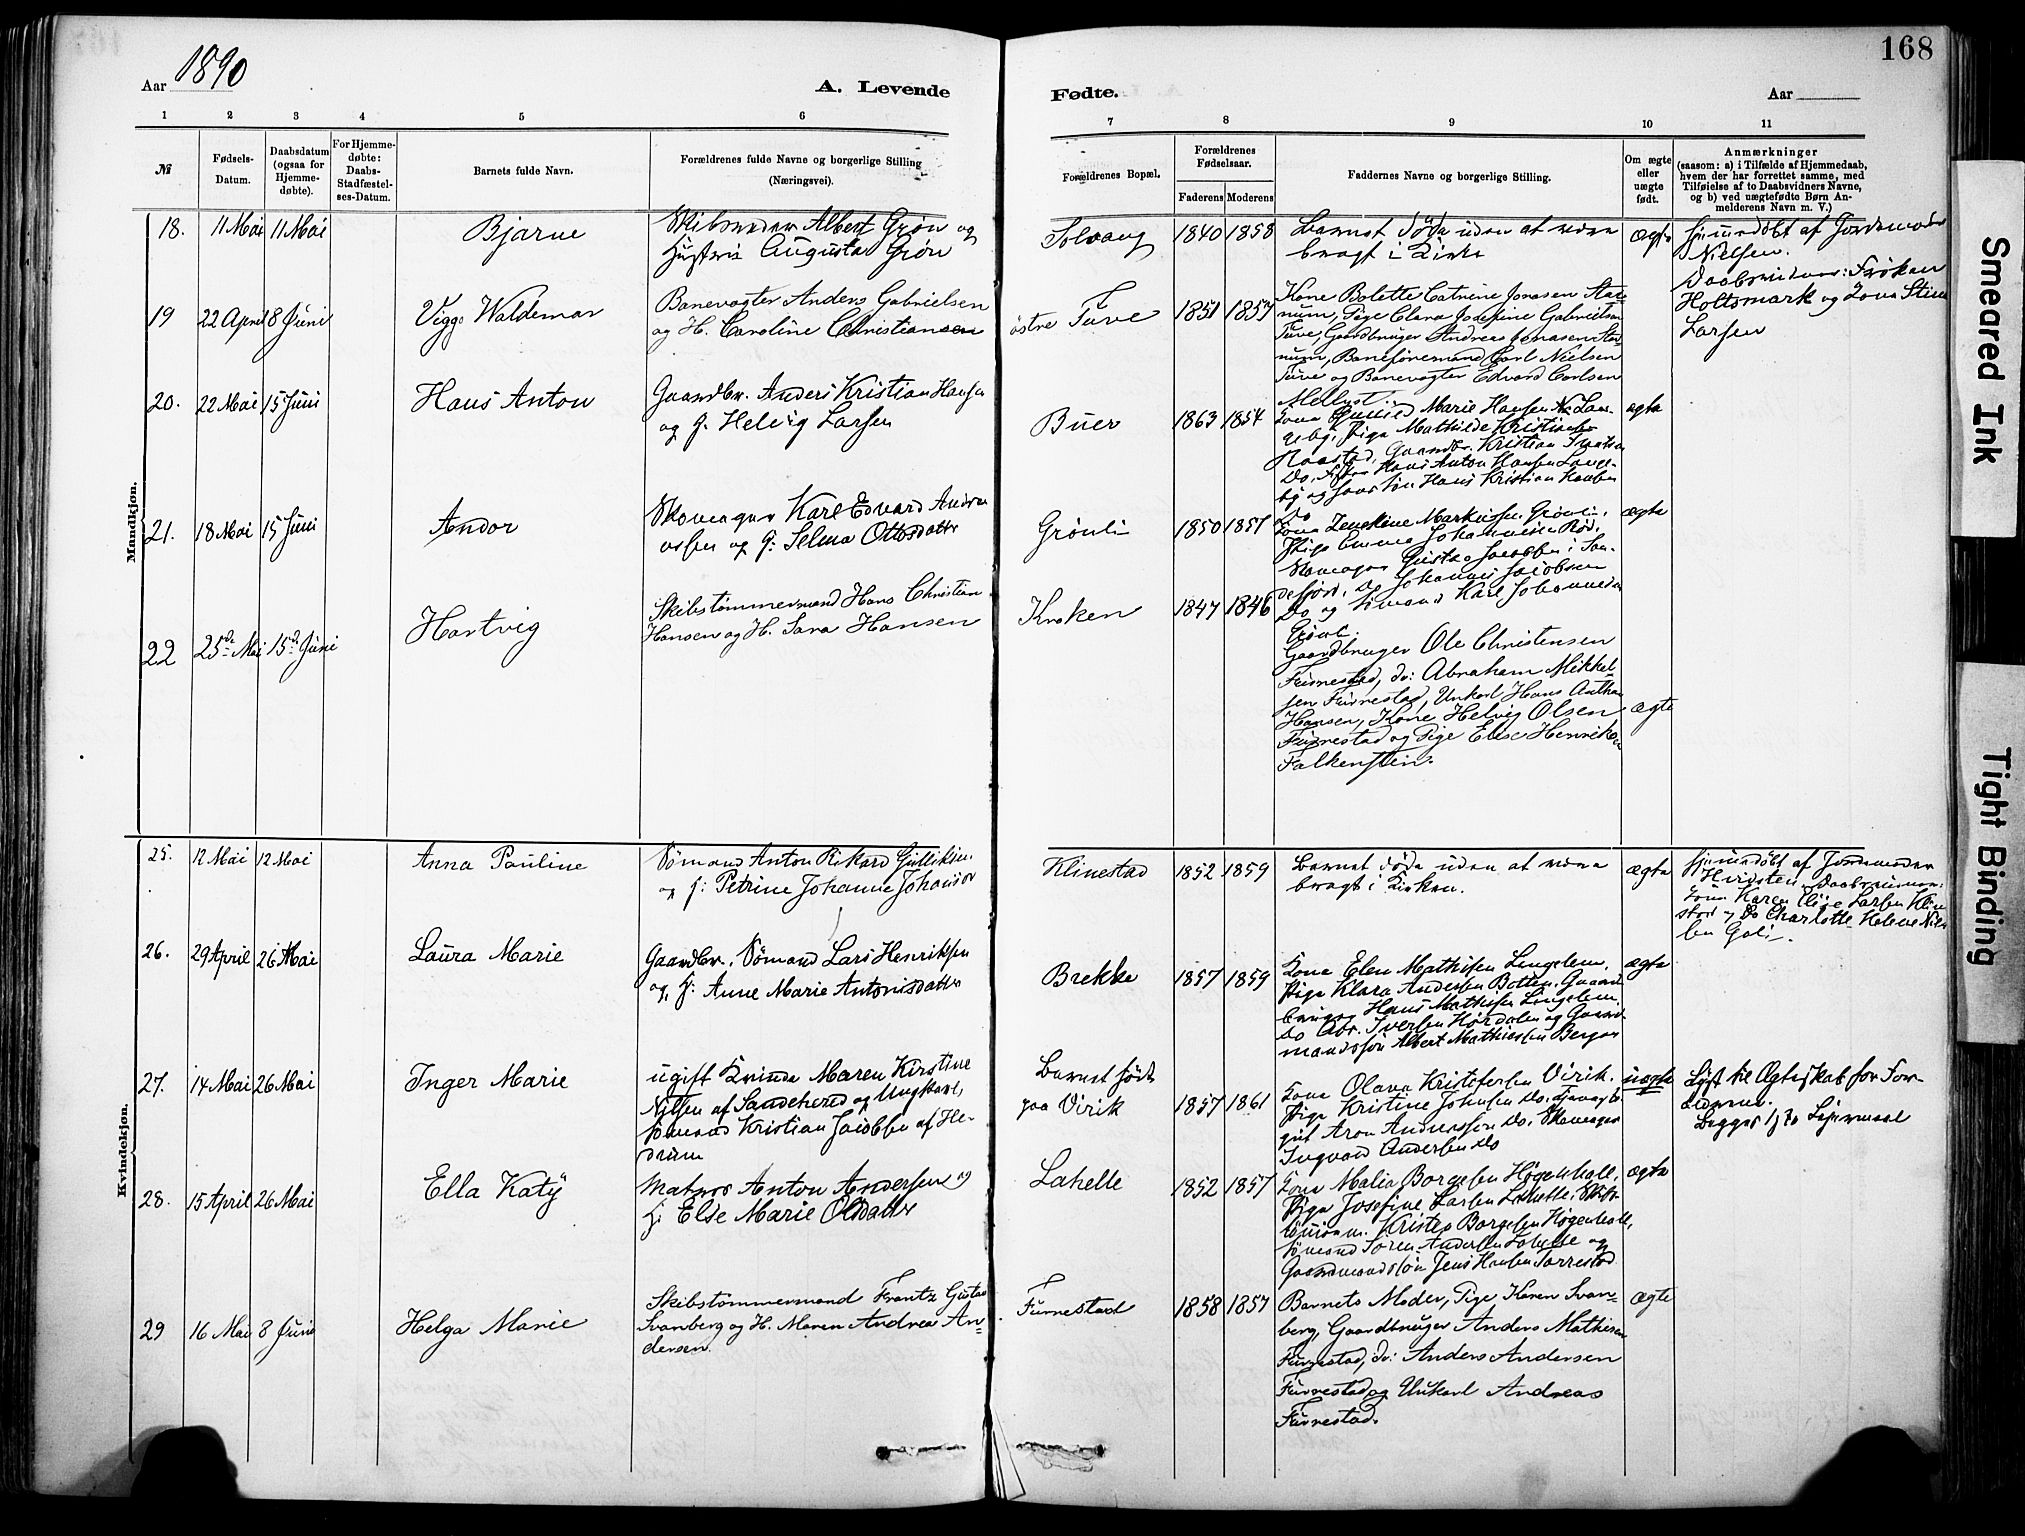 168
Aar 1890
A. Levende
Fødte.
Aar
1 2 3 4 5 6 7 8 9 10 11
№
Fødsels-Datum.
Daabsdatum (ogsaa for Hjemme-døbte).
For Hjemme-døbte: Daabs-Stadfæstel-ses-Datum.
Barnets fulde Navn.
Forældrenes fulde Navne og borgerlige Stilling (Næringsvei).
Forældrenes Bopæl.
Forældrenes Fødselsaar.
Faderens Moderens
Faddernes Navne og borgerlige Stilling.
Om ægte eller uægte født.
Anmærkninger
(saasom: a) i Tilfælde af Hjemmedaab,
hvem der har forrettet samme, med
Tilføielse af to Daabsvidners Navne,
og b) ved uægtefødte Børn An-
melderens Navn m. V.)
Mandkjøn.
18. 11 Mai 11 Mai
Bjarne
Skibsreder Albert Grøn og
Hustru Augusta Grøn
Solvang 1840 1858
Barnet døde uden at være
bragt i Kirke
ægte
Hjemmedøbt af Jordemoder
Nielsen.
Daabsvidner: Frøken
Holtsmark og Kone Stine
Larsen
19 22 April 8 Juni
Viggo Waldemar
Banevogter Anders Gabrielsen
og H. Caroline Christiansen
østre Tuve 1851 1857
Kone Bolette Catrine Jonasen
Pige Clara Josefine Gabrielsen
Tuve, Gaardbruger Andreas Jonasen
Baneformand Carl Nielsen
Tuve og Banevogter Edvard Carlsen
20. 22 Mai 15 Juni
Hans Anton
Gaardbr. Anders Kristian Hansen
og H. Helvig Larsen
Buer 1863 1854
Marie Hansen
Pige Mathilde
Gaardbr. Kristian
Do, Hans Anton Hansen Lange-
by og Hans Kristian
ægte
21. 18 Mai 15 Juni
Andor
Karl Edvard Andre
assen og H: Selma Ottosdatter
Grønli 1850 1857
Kone Markussen Grønli,
Pige Emma Johannesen Rød,
Gustav Jacobsen i San-
defjord, Do Johannes Jacobsen
Do og Sømand Karl Johannesen
Grønli.
ægte
22 25de Mai 15de Juni
Hartvig
Skibstømmermand Hans Christian
Hansen og H. Sara Hansen
Kroken 1847 1846
Gaardbruger Ole Christensen
Furrestad, do: Abraham Mikkel-
sen Furrestad, Unkarl Hans Anthon
Hansen, Kone Helvig Olsen
Furrestad og Pige Elise Henriksen
Falkensten.
ægte
Kvindekjøn.
25. 12 Mai 12 Mai
Anna Pauline
Sømand Anton Rikard Gulliksen
og H: Petrine Johanne Johansdr
Klinestad 1852 1859
Barnet døde uden at være
bragt i Kirken.
ægte
Hjemmedøbt af Jordemoder
Hvidsten
Kone Karen Elise Larsen Klin
stad og Do Charlotte Helene Niel
sen
26. 29 April 26 Mai
Laura Marie
Gaardbr. Sømand Lars Henriksen
og H: Anne Marie Antonisdatter
Brekke 1857 1859
Kone Elen Mathisen Lingelem,
Pige Klara Andersen Botten, Gaard
bruger Hans Mathisen Lingelem,
Do Abr. Iversen Hørdalen og Gaard-
mandssøn Albert Mathiessen Bergan
ægte
27. 14 Mai 26 Mai
Inger Marie
ugift Kvinde Maren Kirstine
Nilsen af Sandeherred og Ungkarl,
Sømand Kristian Jacobsen af He-
drum
Barnet født
paa Virik 1857 1861
Kone Olava Kristofersen Virik.
Pige Kristine Johnsen Do,
gut Aron Andreassen Do,
Ingvald Andersen Do
uægte
Lyst til Ægteskab for For-
ældrene.
Begges 1ste Leiermaal
28. 15 April 26 Mai
Ella Katy
Matros Anton Andersen og
H: Else Marie Olsdatter
Lahelle 1852 1857
Kone Malia Borgesen Høgenhall,
Pige Josefine Larsen Lahelle, Skibs-
tømrm. Krister Borgesen Høgenhall,
Sømand Søren Andersen Lahelle og
Gaardmandssøn Jens Hansen Torrestad
ægte
29 16 Mai 8 Juni
Helga Marie
Skibstømmermand Frantz Gustav
Svanberg og H. Maren Andrea An-
dersen.
Furrestad 1858 1857
Barnets Moder, Pige Karen Svan-
berg, Gaardbruger Anders Mathisen
Furrestad, do: Anders Andersen
Furrestad og Unkarl Andreas
Furrestad.
ægte
Smeared Ink
Tight Binding